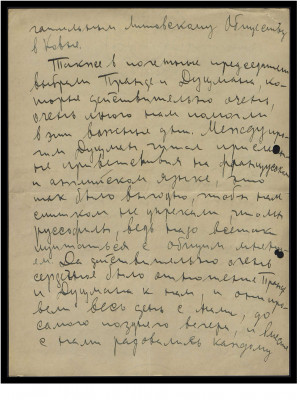 Литовскому Обществу
в Ковно.
Также в почетные председатели
выбрали Пранца и Духмана, ко-
торые действительно очень,
очень много нам помогли
в эти важные дни. Между про-
чим Духман читал
на французском
и английском языке, что
так было выгодно, чтобы нам
слишком не упрекали что мы
русофилы, ведь надо все-таки
считаться с общим мнени-
ем. Да действительно очень
сердечное было отношение Пранца
и Духмана к нам, и они про-
вели весь день с нами, до
самого позднего вечера, и вместе
с нами радовались каждому